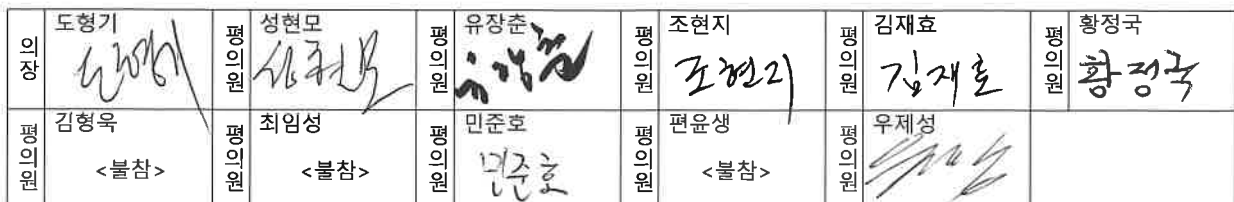 의장 도형기 도형기 평의원 성현모 성현모 평의원 유장춘 유장춘 평의원 조현지 조현지 평의원 김재효 김재효 평의원 황정국 황정국
평의원 김형욱 <불참> 평의원 최임성 <불참> 평의원 민준호 민준호 평의원 편윤생 <불참> 평의원 우제성